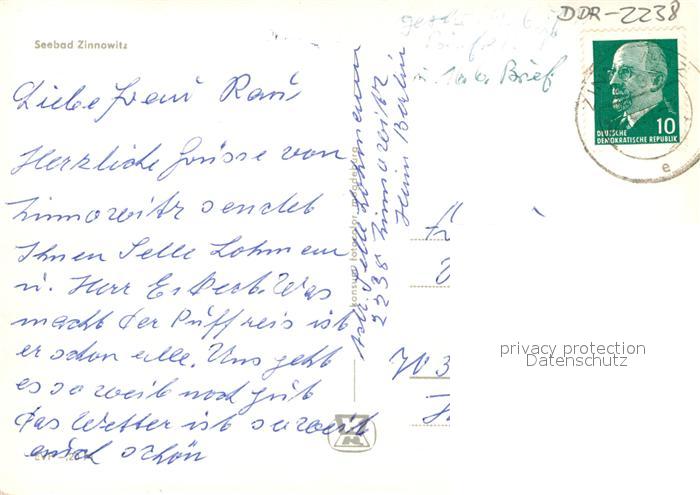 DDR-2238
Seebad Zinnowitz
in 1 Brief
10
DEUTSCHE
DEMOKRATISCHE REPUBLIK
Liebe Frau
Herzliche Grüsse von
Zinnowitz sendet
Ihnen Selle Lohmann
u. Herr E. Was
macht der Puffreis ist
er schon alle. Uns geht
es soweit noch gut
das Wetter ist soweit
auch schön
Selle Lohmann
2238 Zinnowitz
Heim Berlin
konsum fotocolor magdeburg
703
privacy protection
Datenschutz